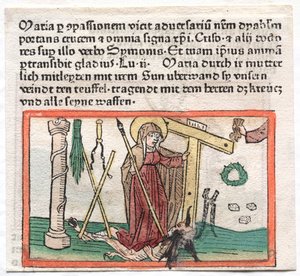 Maria ꝑ ꝯpassionem vicit aduersariũ nr̃m dyabolũ
portans crucem et omnia signa xp̃i. Criso. ⁊ alij docto
res sup illo verbo Symonis. Et tuam ip̃ius animã
ꝑtransibit gladius. Lu. ii. Maria durch ir mutter
lich mitleyden mit irem Sun uberwand sy unsern
veindt den teuffel. tragendt mit dem herren dz kreücz
und alle seyne waffen.